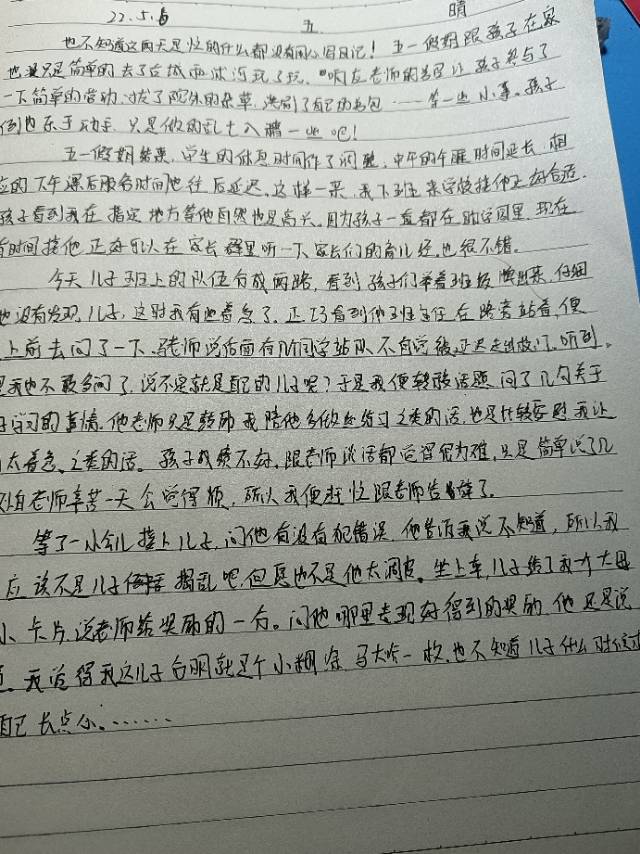 22.5.6 五 晴
也不知道这两天是忙的什么都没有用心写日记！五一假期跟孩子在家
也只是简单的去了台城雨冰河玩了玩。响应老师的号召让孩子参与了
一下简单的劳动：拔了院外的杂草，洗刷了自己的书包……等一些小事。孩子
倒也乐于动手，只是做的乱七八糟一些吧！
五一假期结束，学生的休息时间作了调整，中午的午睡时间延长，相
应的下午课后服务时间也往后延迟，这样一来，我下班来学校接他正好合适，
孩子看到我在指定地方等他自然也是高兴。因为孩子一直都在助学园里，现在
有时间接他，正好可以在家长群里听一下家长们的育儿经，也很不错。
今天儿子班上的队伍分成两路，看到孩子们举着班级牌出来，仔细
也没有发现儿子，这时我有些着急了。正巧看到他班主任在路旁站着，便
上前去问了一下，老师说后面有几个同学站队不自觉被延迟走出校门，听到
我也不敢多问了，说不定就是自己的儿子呢？于是我便转换话题，问了几句关于
学习的事情。他老师只是鼓励我陪他多做些练习之类的话，也是比较安慰我让
太着急之类的话。孩子成绩不好，跟老师谈话都觉得很为难，只是简单说了几
老师辛苦一天会觉得烦，所以我便赶忙跟老师告辞了。
等了一小会儿接上儿子，问他有没有犯错误，他告诉我说不知道，所以我
应该不是儿子捣乱吧，但愿也不是他太调皮。坐上车，儿子给了我一个大拇
小卡片，说老师给奖励的一分。问他哪里表现好得到的奖励，他还是说
我觉得我这儿子台明就是个小糊涂，马大哈一枚，也不知道儿子什么时候
自己长点心……